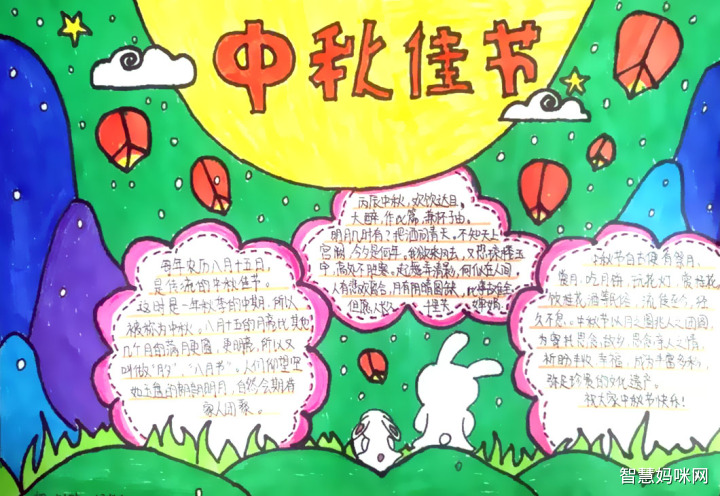 中秋佳节
丙辰中秋，欢饮达旦，
大醉，作此篇，兼怀子由。
明月几时有？把酒问青天。不知天上
宫阙，今夕是何年。我欲乘风归去，又恐琼楼玉
宇，高处不胜寒。起舞弄清影，何似在人间
人有悲欢离合，月有阴晴圆缺，此事古难全
但愿人长久 婵娟
每年农历八月十五日，
是传统的中秋佳节。
这时是一年秋季的中期，所以
被称为中秋。八月十五的月亮比其他
几个月的满月更圆，更明亮，所以又
叫做“月夕”，“八月节”。人们仰望空
如玉盘的朗朗明月，自然会期盼
家人团聚。
中秋节自古便有祭月、
赏月、吃月饼、玩花灯、赏桂花、
饮桂花酒等民俗，流传至今，经
久不息。中秋节以月之圆兆人之团圆，
为寄托思念故乡，思念亲人之情，
祈盼丰收、幸福，成为丰富多彩、
弥足珍贵的文化遗产。
祝大家中秋节快乐！
智慧妈咪网